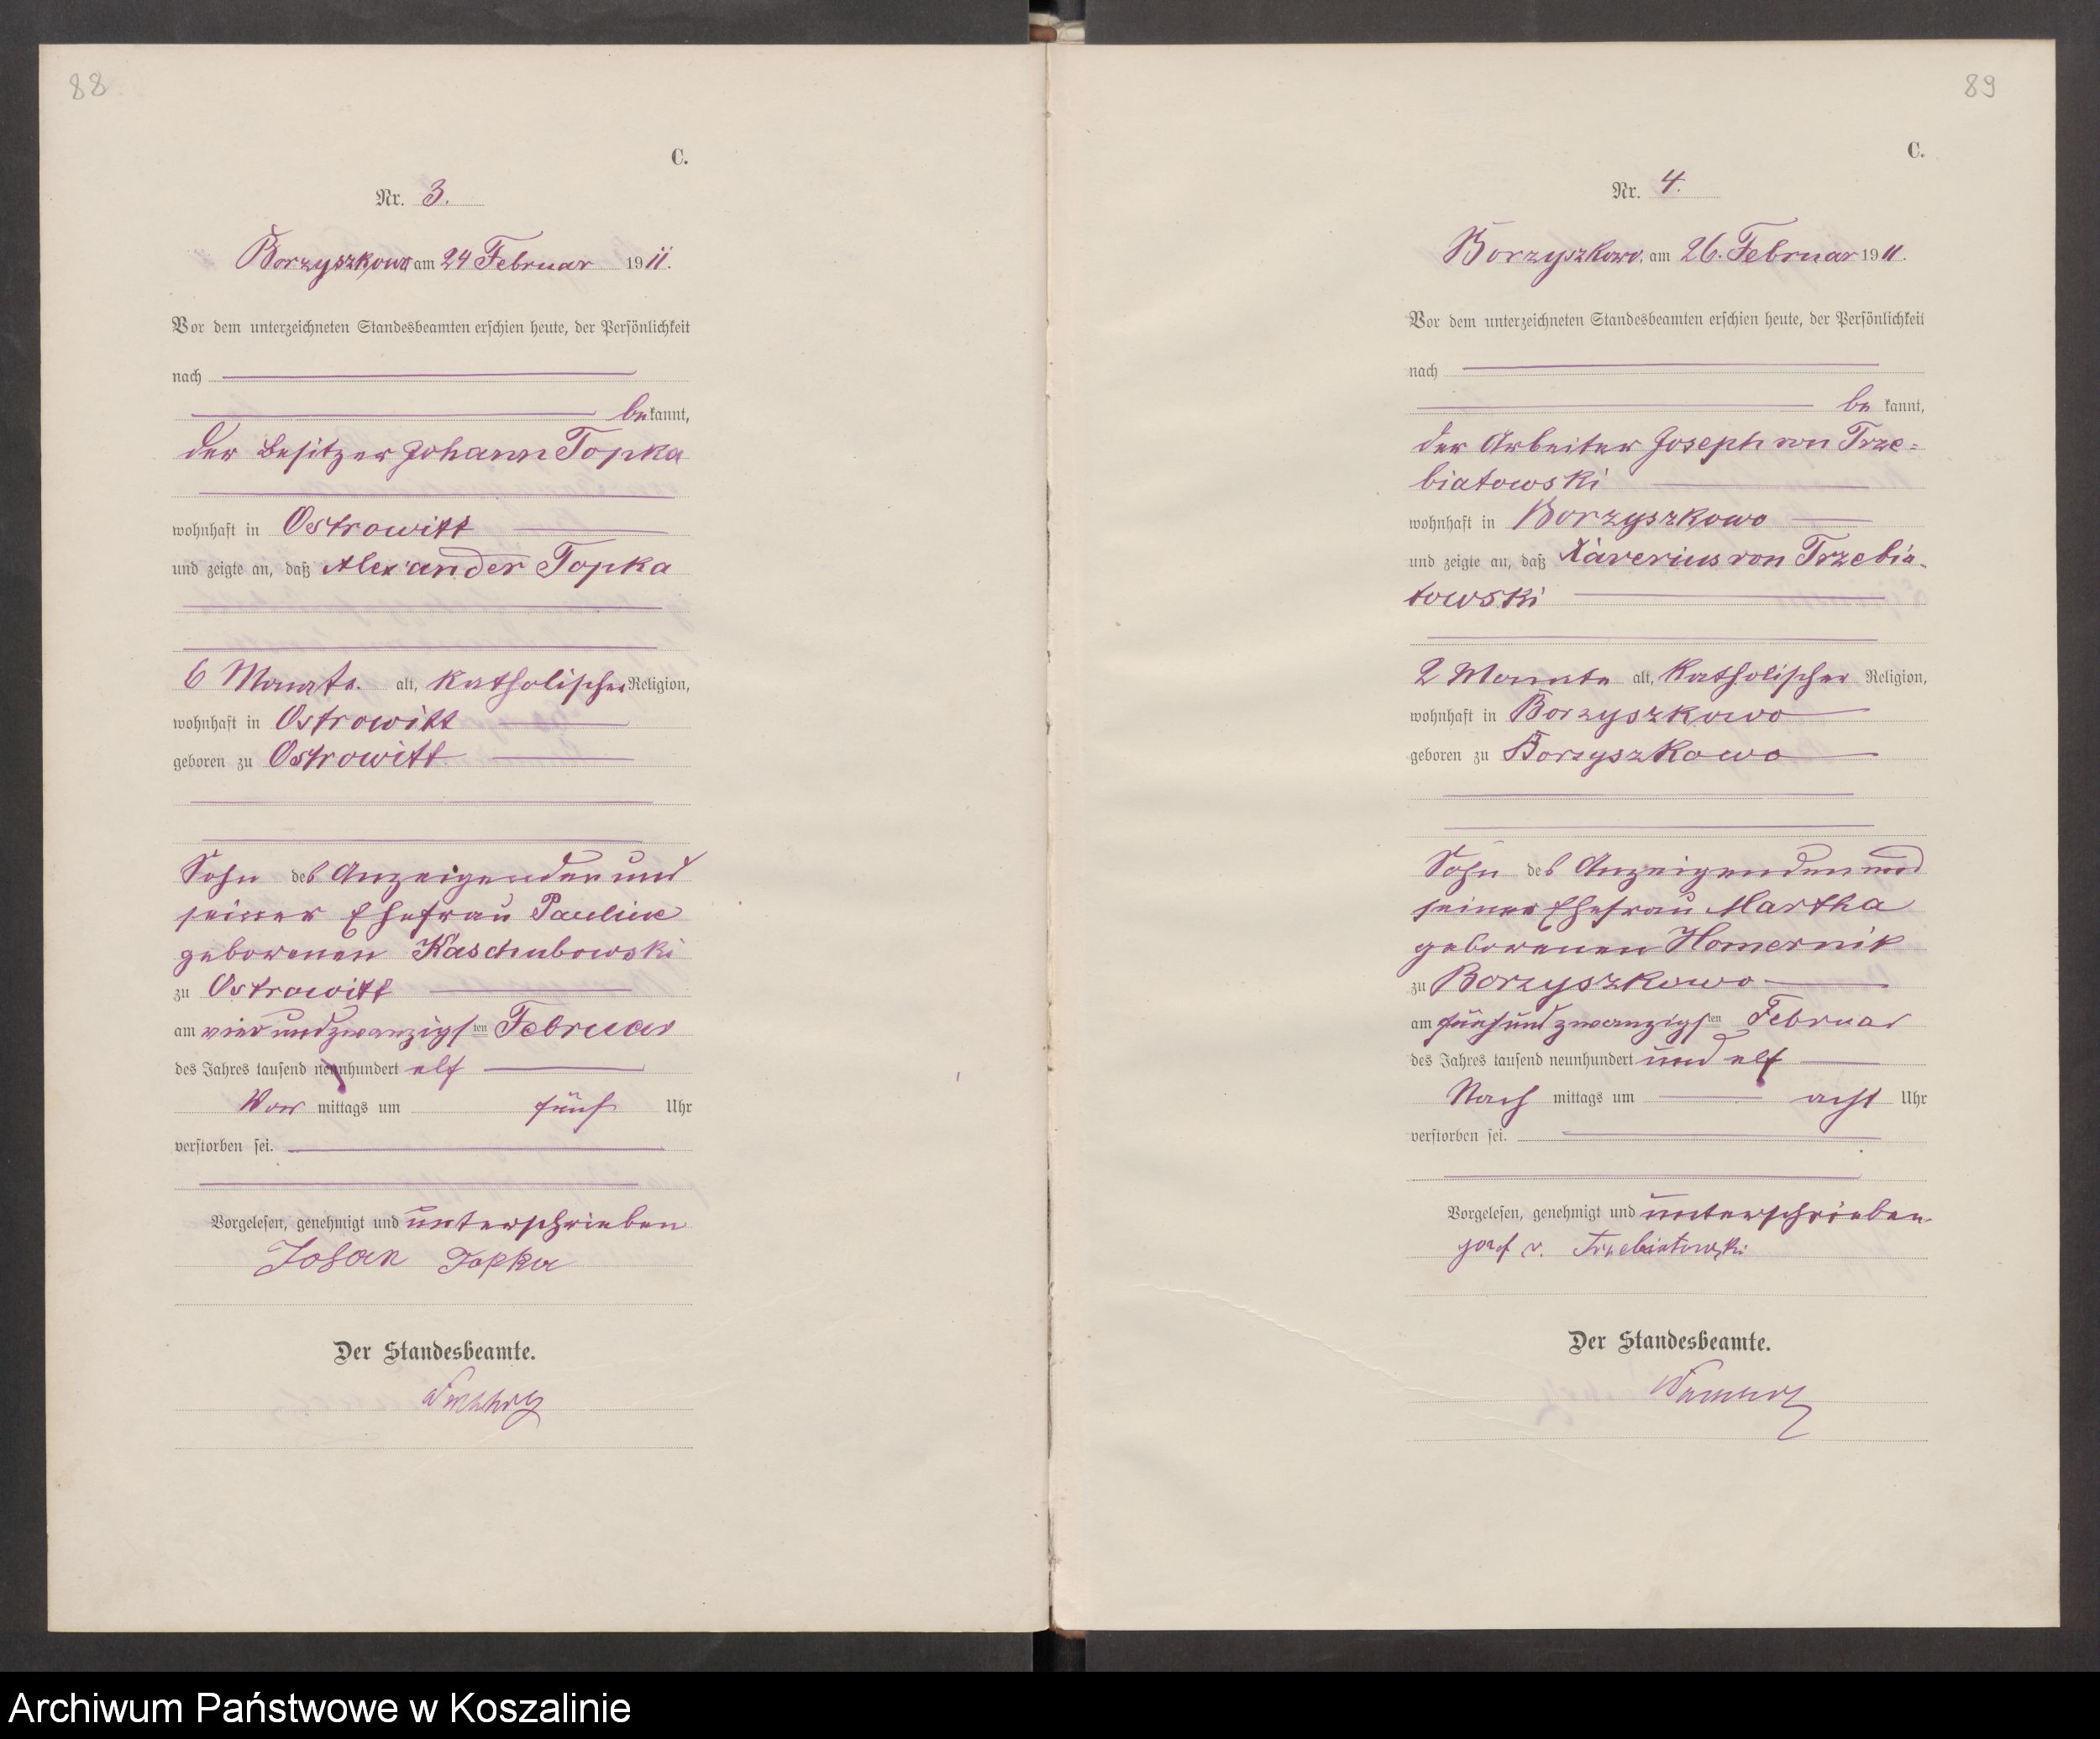 88
C.
Nr. 3.
Borzyszkowo am 24 Februar 1911.
Vor dem unterzeichneten Standesbeamten erschien heute, der Persönlichkeit
nach
bekannt,
der Besitzer Johann Topka
wohnhaft in Ostrowitt
und zeigte an, daß Alexander Topka
6 Monate alt, katholischer Religion,
wohnhaft in Ostrowitt
geboren zu Ostrowitt
Sohn des Anzeigenden und
seiner Ehefrau Pauline
geborenen Kaschubowski
zu Ostrowitt
am vierundzwanzigsten Februar
des Jahres tausend neunhundert elf
Vor mittags um fünf Uhr
verstorben sei.
Vorgelesen, genehmigt und unterschrieben
Johan Topka
Der Standesbeamte.
89
C.
Nr. 4.
Borzyszkowo, am 26. Februar 1911.
Vor dem unterzeichneten Standesbeamten erschien heute, der Persönlichkeit
nach
be kannt,
der Arbeiter Joseph von Trze=
biatowski
wohnhaft in Borzyszkowo
und zeigte an, daß Xaverius von Trzebia-
towski
2 Monate alt, katholischer Religion,
wohnhaft in Borzyszkowo
geboren zu Borzyszkowo
Sohn des Anzeigenden und
seiner Ehefrau Martha
geborenen Homernik
zu Borzyszkowo
am fünfundzwanzigsten Februar
des Jahres tausend neunhundert und elf
Nach mittags um acht Uhr
verstorben sei.
Vorgelesen, genehmigt und unterschrieben
Josef v. Trzebiatowski
Der Standesbeamte.
Archiwum Państwowe w Koszalinie